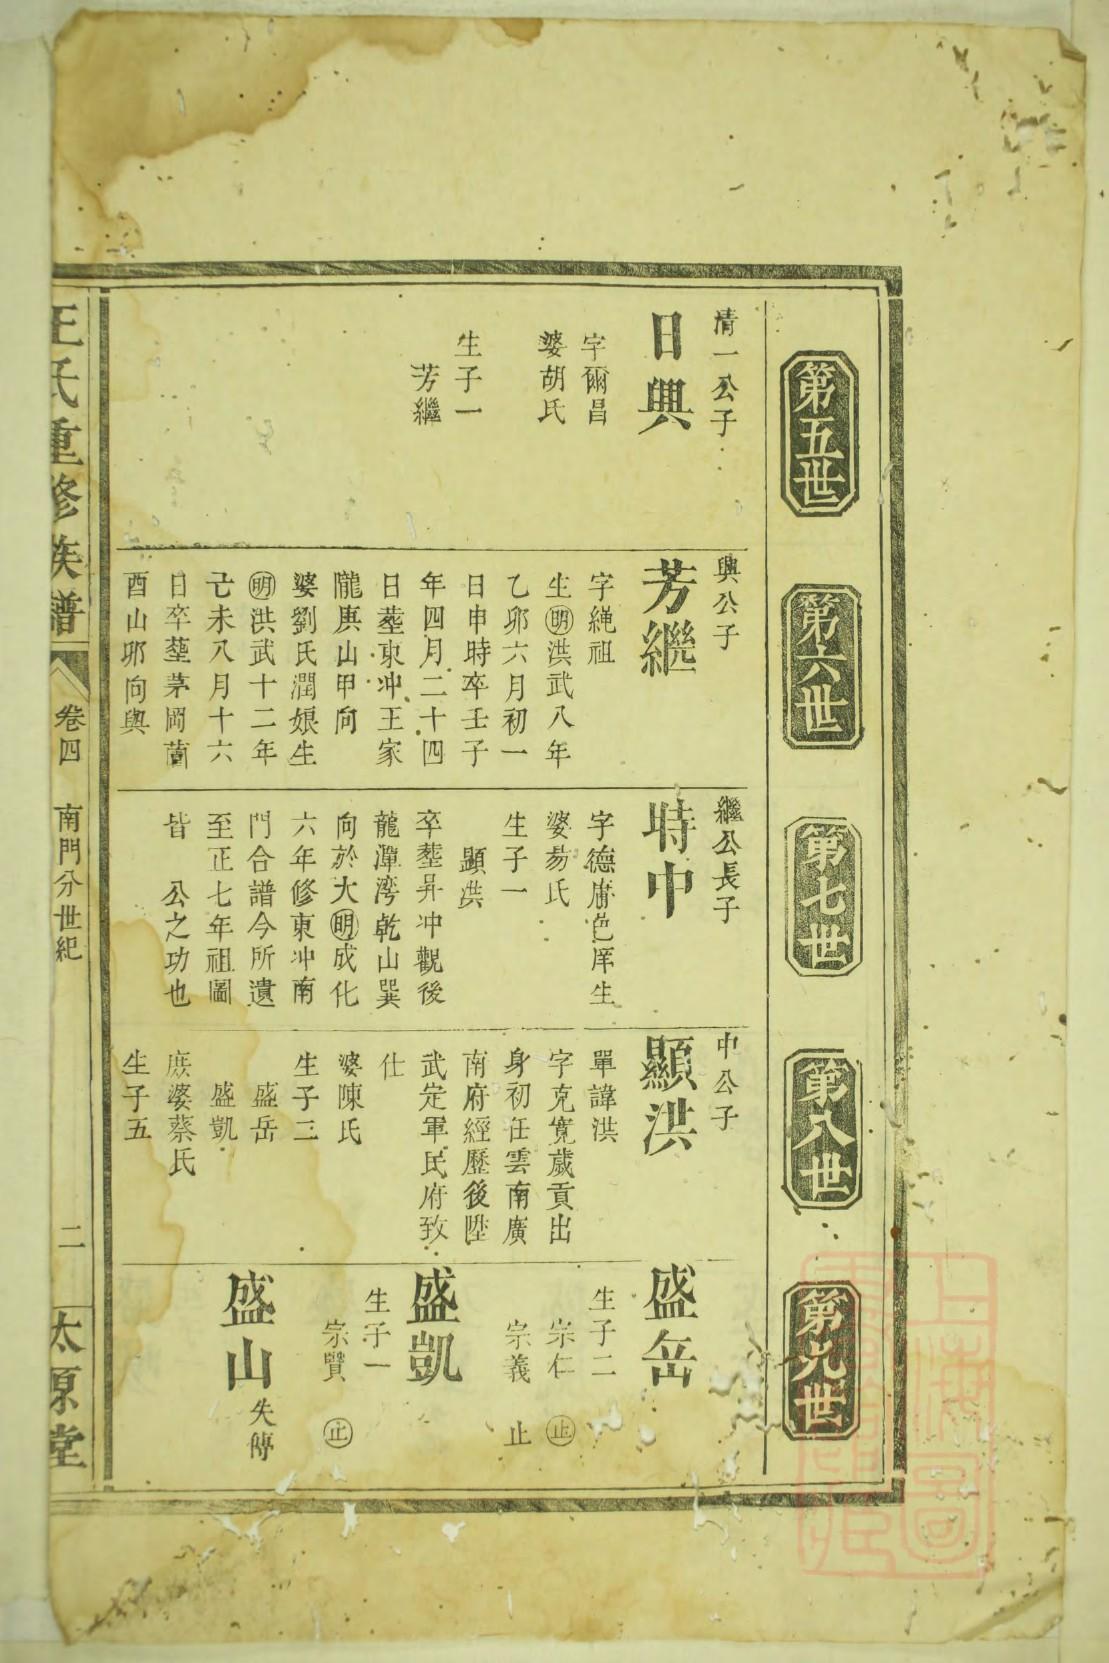 第五世
第六世
第七世
第八世
第九世
清一公子
日興
字爾昌
婆胡氏
生子一
芳繼
興公子
芳繼
字繩祖
生明洪武八年
乙卯六月初一
日申時卒壬子
年四月二十四
日塟東冲王家
隴庚山甲向
婆劉氏潤娘生
明洪武十二年
己未八月十六
日卒塟茅岡
酉山卯向與
繼公長子
時中
字德庸邑庠生
婆易氏
生子一
顯洪
卒塟昇冲觀後
龍潭湾乾山巽
向於大明成化
六年修東冲南
門合譜今所遺
至正七年祖圖
皆 公之功也
中公子
顯洪
單諱洪
字克寬歲貢出
身初任雲南廣
南府經歷後陞
武定軍民府致
仕
婆陳氏
生子三
盛岳
盛凱
庶婆蔡氏
生子五
盛岳
生子二
宗仁 止
宗義 止
盛凱
生子一
宗贒 止
盛山 失傳
王氏重修族譜
卷四 南門分世紀
二
太原堂
上海圖